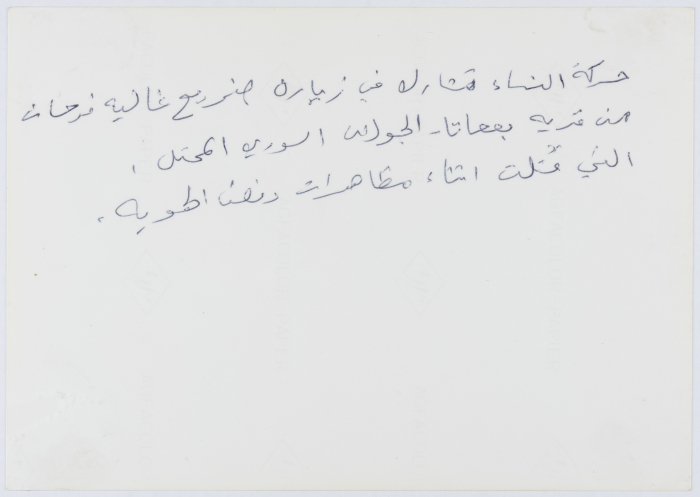 حركة النساء تشارك في زيارة ضريح غالية فرحات
من قرية بقعاثا- الجولان السوري المحتل،
التي قُتلت اثناء مظاهرات رفض الهوية.